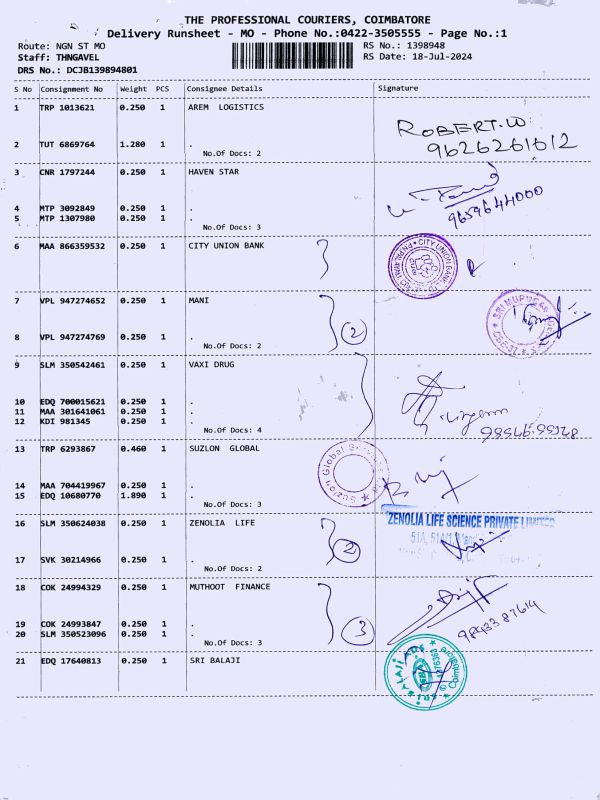 THE PROFESSIONAL COURIERS, COIMBATORE
Delivery Runsheet - MO - Phone No.:0422-3505555 - Page No.:1
Route: NGN ST MO
RS No.: 1398948
Staff: THNGAVEL
RS Date: 18-Jul-2024
DRS No.: DCJB139894801
S No Consignment No Weight PCS Consignee Details Signature
1 TRP 1013621 0.250 1 AREM LOGISTICS
ROBERT.W
2 TUT 6869764 1.280 1 .
9626261612
No.Of Docs: 2
3 CNR 1797244 0.250 1 HAVEN STAR
9659644000
4 MTP 3092849 0.250 1 .
5 MTP 1307980 0.250 1 .
No.Of Docs: 3
6 MAA 866359532 0.250 1 CITY UNION BANK
CITY UNION BANK
7 VPL 947274652 0.250 1 MANI
SRI MURUGAN
2
8 VPL 947274769 0.250 1 .
No.Of Docs: 2
9 SLM 350542461 0.250 1 VAXI DRUG
10 EDQ 700015621 0.250 1 .
11 MAA 301641061 0.250 1 .
12 KDI 981345 0.250 1 .
No.Of Docs: 4
13 TRP 6293867 0.460 1 SUZLON GLOBAL
Suzlon Global Services
14 MAA 704419967 0.250 1 .
15 EDQ 10680770 1.890 1 .
No.Of Docs: 3
16 SLM 350624038 0.250 1 ZENOLIA LIFE
ZENOLIA LIFE SCIENCE PRIVATE LIMITED
51A, 51A/1
2
17 SVK 30214966 0.250 1 .
No.Of Docs: 2
18 COK 24994329 0.250 1 MUTHOOT FINANCE
19 COK 24993847 0.250 1 .
3
20 SLM 350523096 0.250 1 .
9843387614
No.Of Docs: 3
21 EDQ 17640813 0.250 1 SRI BALAJI
Coimbatore